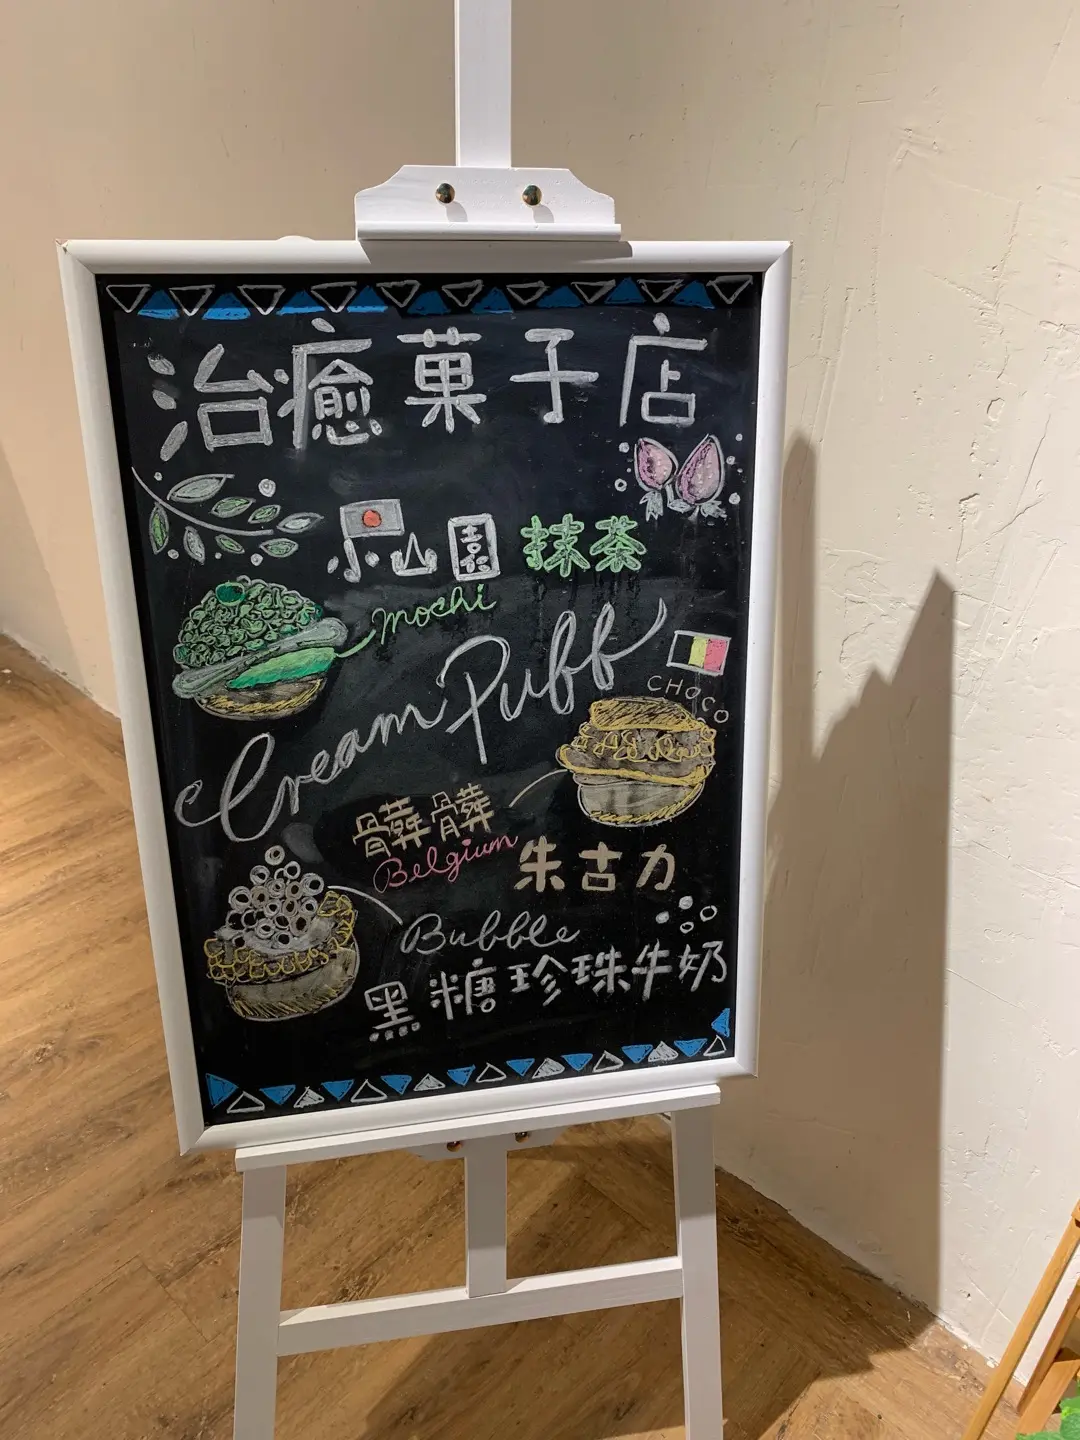 治癒菓子店
小山園 抹茶
mochi
Cream Puff
CHOCO
髒髒
Belgium 朱古力
Bubble
黑糖珍珠牛奶